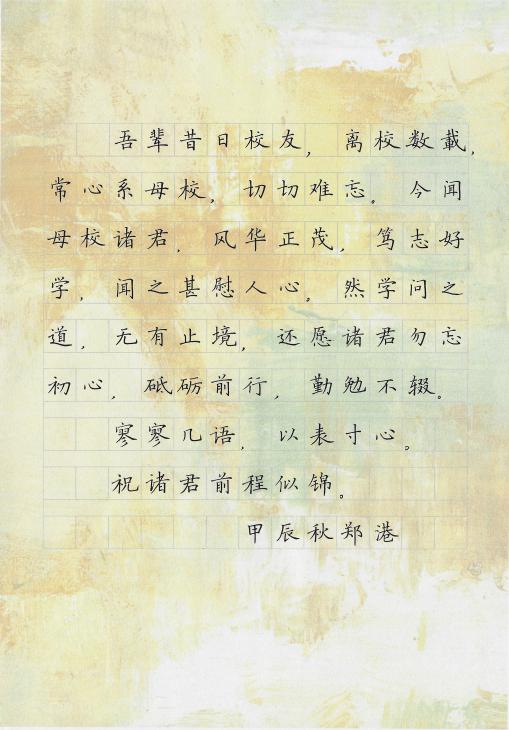 吾辈昔日校友，离校数载，
常心系母校，切切难忘。今闻
母校诸君，风华正茂，笃志好
学，闻之甚慰人心。然学问之
道，无有止境，还愿诸君勿忘
初心，砥砺前行，勤勉不辍。
寥寥几语，以表寸心。
祝诸君前程似锦。
甲辰秋郑港